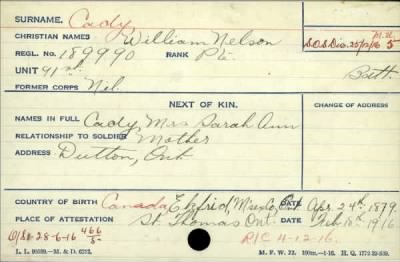 SURNAME. Cady,
CHRISTIAN NAMES William Nelson
REGL. NO. 189990 RANK Pte. S.O.S. Dis. 25/2/16
UNIT 91st Batt.
FORMER CORPS Nil.
NEXT OF KIN. CHANGE OF ADDRESS
NAMES IN FULL Cady, Mrs Sarah Ann
RELATIONSHIP TO SOLDIER Mother
ADDRESS Dutton, Ont
COUNTRY OF BIRTH Canada, Ekfrid, Msex Co, Ont DATE Apr. 24th, 1879.
PLACE OF ATTESTATION St. Thomas Ont. DATE Feb 18th, 1916
O/S 28-6-16 466/5 R/C 4-12-16.
M. F. W. 22.